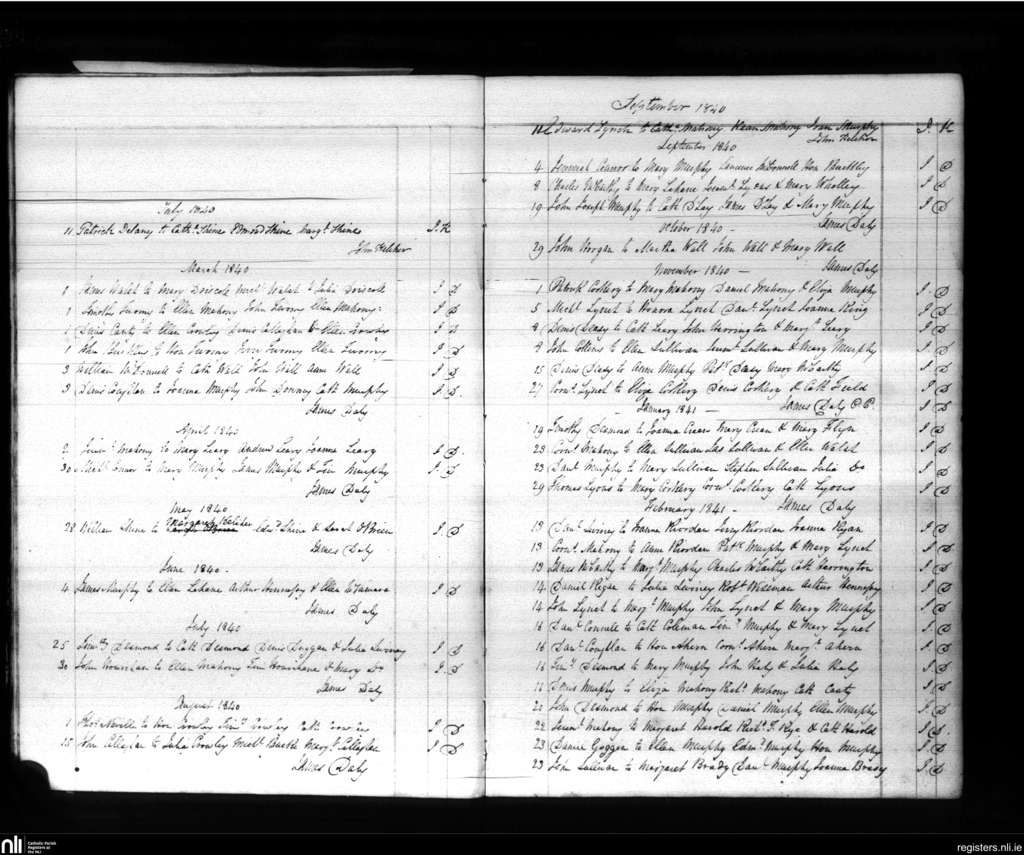 July 1840
11 Patrick Delany to Cath. Shine Edmond Shine Margt. Shine J. K
John Keleher
March 1840
James Walsh to Mary Driscoll Michl. Walsh & Julia Driscoll J D
1 Timothy Twomy to Ellen Mahony John Twomy Ellen Mahony J D
1 Denis Canty to Ellen Crowley Denis Callaghan & Ellen J D
1 John to Hon Twomy Twomy Ellen Twomy J D
3 William McDonnell to Cath Wall John Wall Ann Wall J D
3 Denis Coughlan to Joanna Murphy John Cath Murphy J D
James Daly
April 1840
2 Mahony to Mary Leary Andrew Leary Joanna Leary J D
30 Michl. Connor to Mary Murphy James Murphy & Tim Murphy J D
James Daly
May 1840
Margaret Keleher
28 William Shine to Edwd. Shine & Sarah O'Brien J D
James Daly
June 1840
4 James Murphy to Ellen Lehane Arthur Hennessy & Ellen McNamara J D
James Daly
July 1840
25 Timothy Desmond to Cath Desmond Denis Duggan & Julia J D
30 John Hourihan to Ellen Mahony Tim Hourihane & Mary Do J D
James Daly
August 1840
1 Thos. Neville to Hon Crowley Timy. Crowley Cath Crowley J D
15 John Callaghan to Julia Crowley Michl. Barrett Mary Callaghan J D
James Daly
September 1840
11 Edward Lynch to Cath. Mahony Kean Mahony Joan Murphy J. K
John Keleher
September 1840
4 Jeremiah Connor to Mary Murphy Laurence McDonnell Hon Buckley J D
8 Charles McCarthy to Mary Lehane Lyons & Mary Wholley J D
19 John Joseph Murphy to Cath D'Lay James D'Lay & Mary Murphy J D
James Daly
October 1840
29 John Horgan to Martha Wall John Wall & Mary Wall
James Daly
November 1840
1 Patrick Corkery to Mary Mahony Daniel Mahony & Eliza Murphy J D
5 Michl. Lynch to Honora Lynch Danl. Lynch Joanna Ring J D
8 Denis Deasy to Cath Leary John Herrington & Mary Leary J D
9 John Collins to Ellen Sullivan Sullivan & Mary Murphy J D
15 Denis Deasy to Anne Murphy Patk. Deasy Mary McCarthy J D
27 Corns. Lynch to Eliza Corkery Denis Corkery & Cath Field J D
James Daly P.P.
January 1841 J D
19 Timothy Desmond to Joanna Crean Mary Crean & Mary Flyn J D
23 Corns. Mahony to Ellen Sullivan Jas Sullivan & Ellen Walsh J D
23 Danl Murphy to Mary Sullivan Stephen Sullivan Julia Do J D
29 Thomas Lyons to Mary Corkery Corns. Corkery Cath Lyons J D
James Daly
February 1841
13 Danl. to Joanna Riordan Jerry Riordan Joanna Ryan J D
13 Corns. Mahony to Ann Riordan Patk Murphy & Mary Lynch J D
13 James McCarthy to Margt Murphy Charles McCarthy Cath Herrington J D
14 Daniel Regan to Julia Robt. Wiseman Arthur Hennessy J D
14 John Lynch to Margt. Murphy John Lynch & Mary Murphy J D
16 Danl Connell to Cath Coleman Timy Murphy & Mary Lynch J D
16 Danl. Coughlan to Hon Ahern Corns. Ahern Margt. Ahern J D
16 Timy. Desmond to Mary Murphy John Kealy & Julia Kealy J D
Denis Murphy to Eliza Mahony Mahony Cath Canty J D
22 John Desmond to Hon Murphy Daniel Murphy Ellen Murphy J D
22 Mahony to Margaret Harold Richd. T. Rye & Cath Harold J D
23 Daniel Goggin to Ellen Murphy Edmd. Murphy Hon Murphy J D
23 John Sullivan to Margaret Brady Dan Murphy Joanna Brady J D
nli Catholic Parish Registers at the NLI
registers.nli.ie